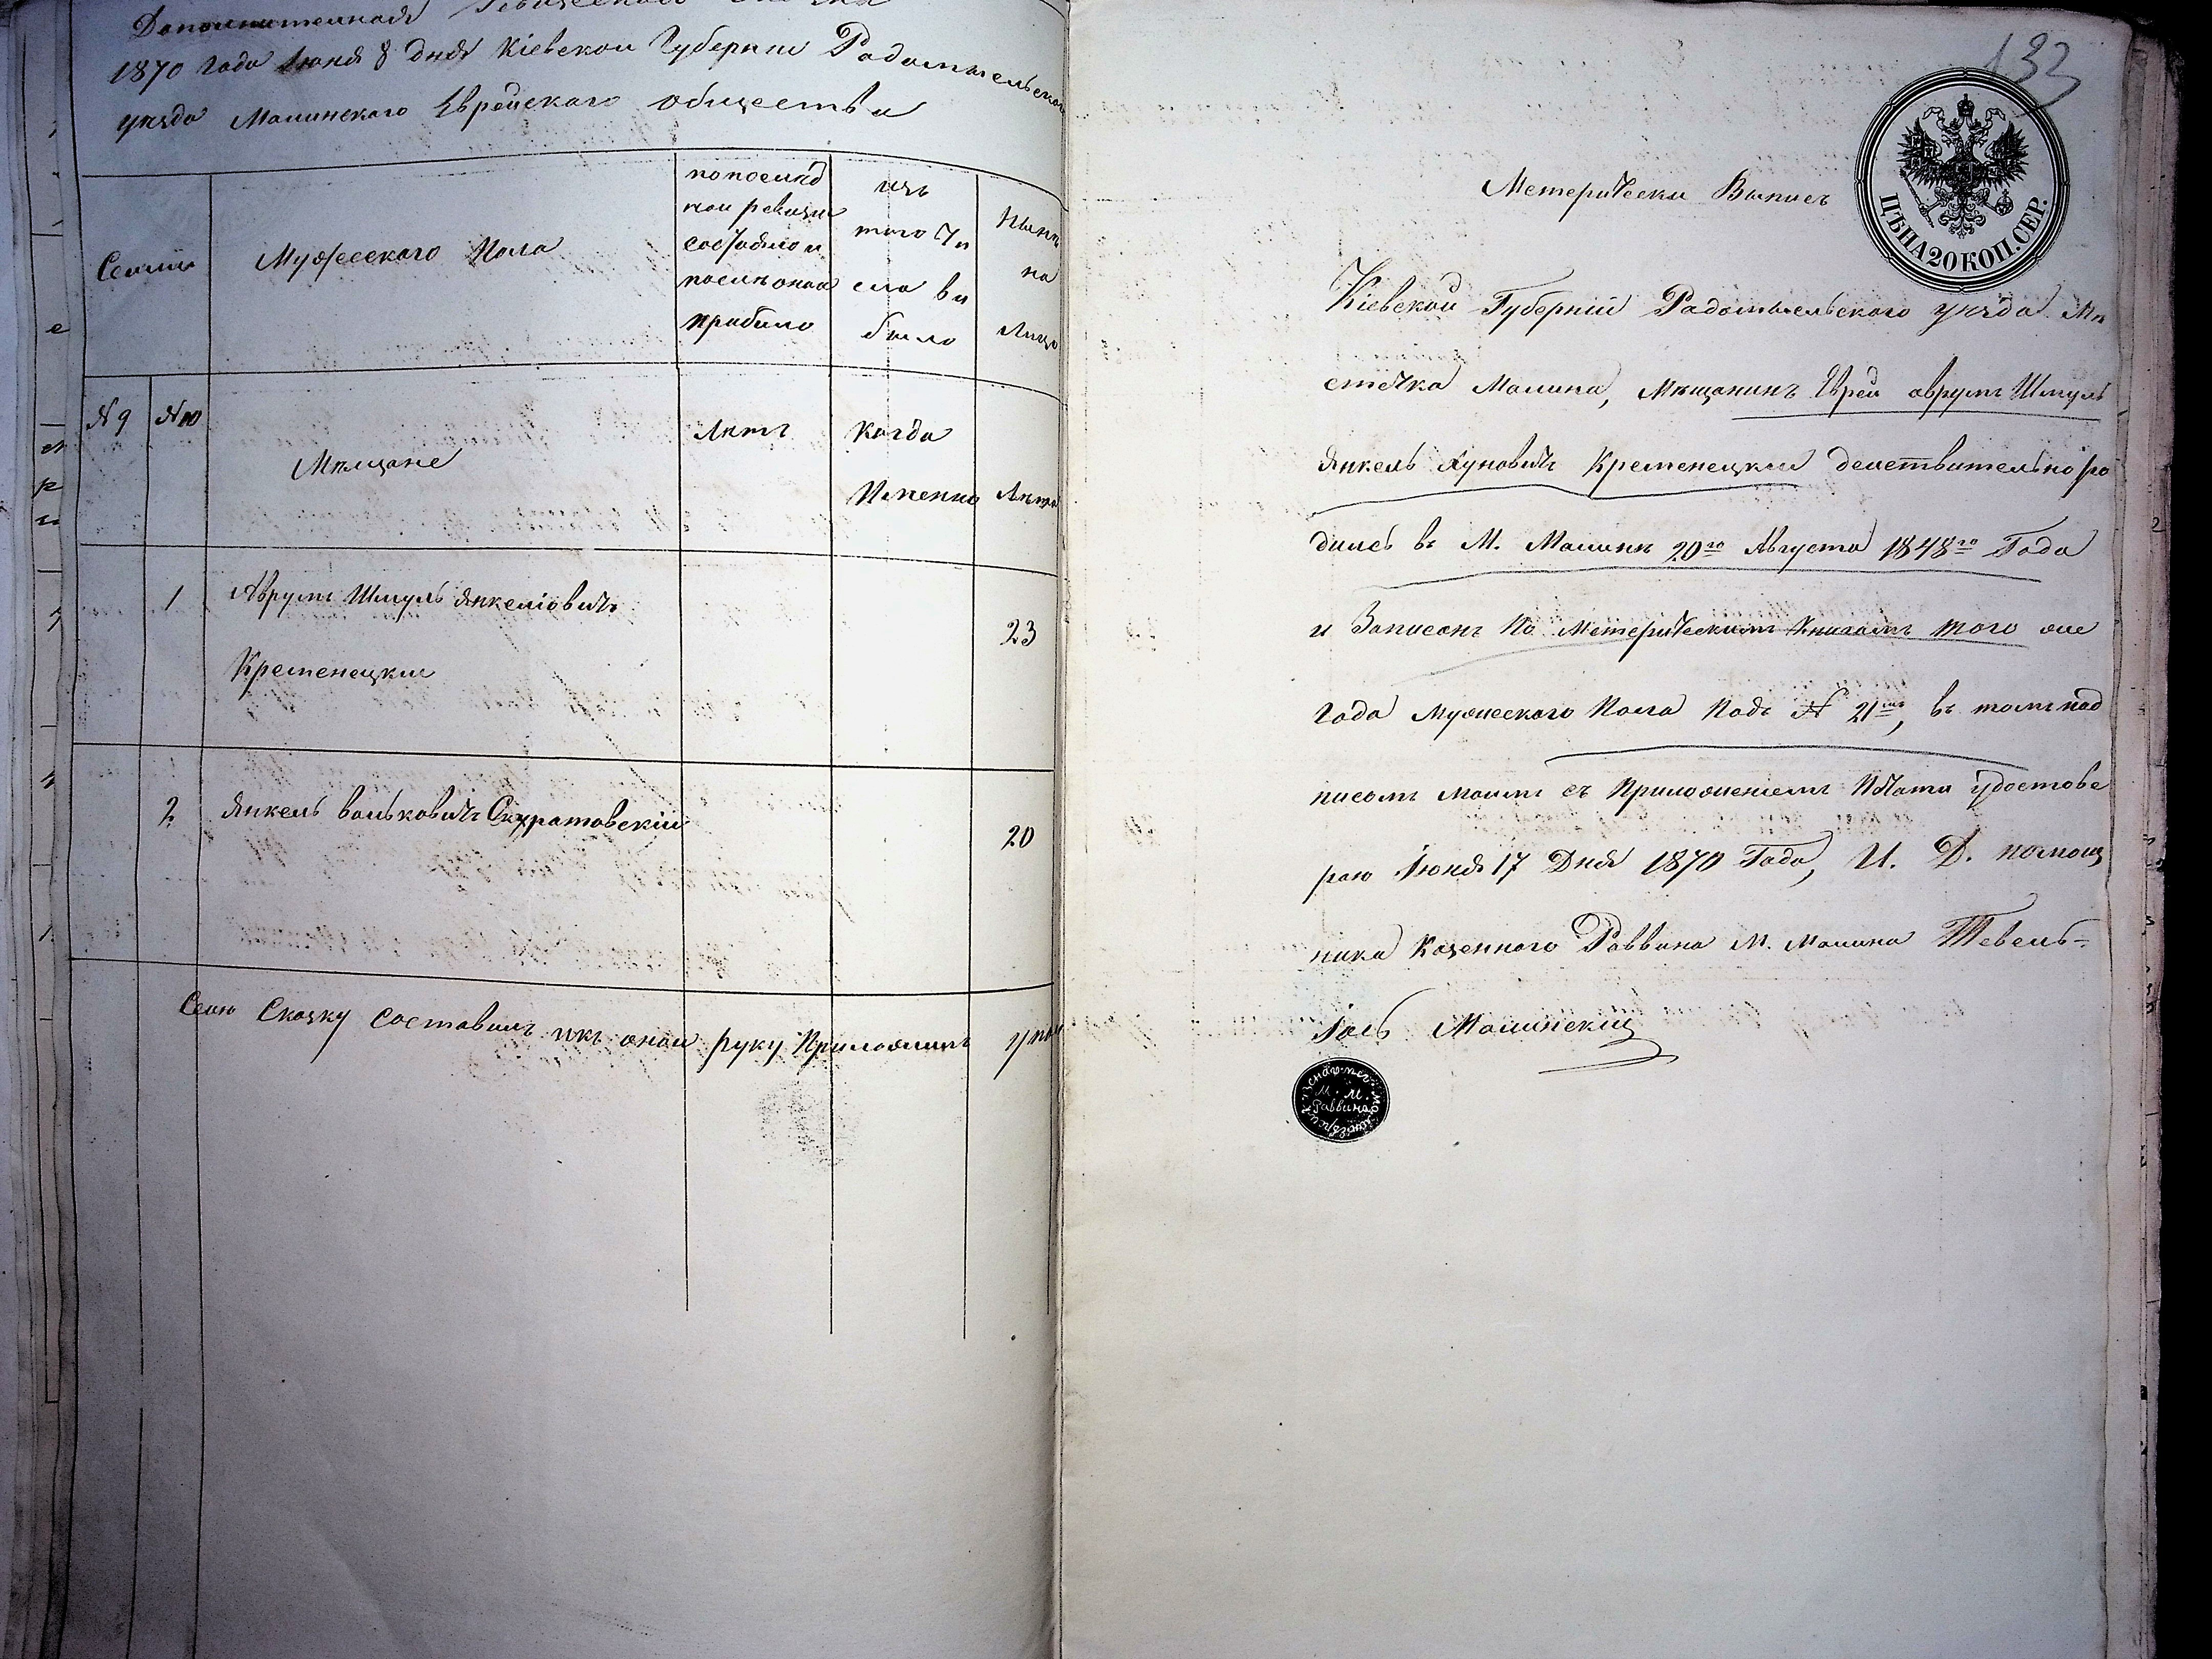 Дополнительная Ревизская Сказка
1870 года Іюня 8 дня Кіевской Губерніи Радомысльского
уѣзда Малинского Еврейского общества
Семьи
Мужеского Пола
по послѣд
ней ревизіи
состояло и
послѣ оной
прибыло
изъ
того чи
сла вы
было
Нынѣ
на
Лицо
№ 9
№ 10
Мѣщане
Лѣтъ
Когда
Именно
Лѣта
1
Аврумъ Шмуль Янкеліовичъ
Кременецкий
23
2
Янкель вольковичъ Скуратовскій
20
Сею Сказку составилъ и къ оной руку Приложилъ
133
ЦѢНА 20 КОП. СЕР.
Метерически Выписъ
Кіевской Губерній Радомысельского уѣзда Мѣ
стечка Малина, Мѣщанинъ Еврей аврумъ Шмуль
Янкель Хуновичъ Кременецкий деиствительно ро
дилсь въ М. Малинѣ 20го Августа 1848го Года
и Записонъ По Метерическимъ Книгамъ того же
года мужеского Пола Подъ № 21мъ, въ томъ под
писомъ моимъ съ Приложениемъ Пѣчати удостове
раю Іюня 17 Дня 1870 Года, И. Д. помощ
ника Казенного Раввина М. Малина Тевель-
Іось Малинский
М. М.
Раввина